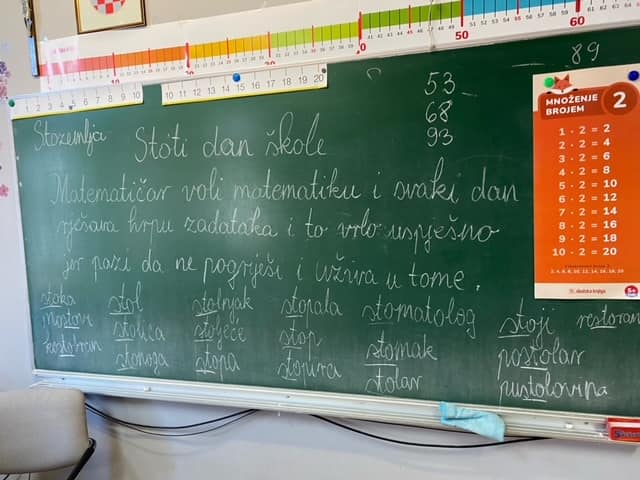 50
60
1 2 3 4 5 6 7 8 9 10
10 11 12 13 14 15 16 17 18 19 20
89
53
68
93
Stozemlja
Stoti dan škole
Matematičar voli matematiku i svaki dan
rješava hrpu zadataka i to vrlo uspješno
jer pazi da ne pogriješi i uživa u tome.
stoka stol stolnjak stopala stomatolog stoji restoran
mostovi stolica stoljeće stop stomak postolar
kostobran stonoga stopa stopica stolar pustolovina
MNOŽENJE
BROJEM 2
1 · 2 = 2
2 · 2 = 4
3 · 2 = 6
4 · 2 = 8
5 · 2 = 10
6 · 2 = 12
7 · 2 = 14
8 · 2 = 16
9 · 2 = 18
10 · 2 = 20
2, 4, 6, 8, 10, 12, 14, 16, 18, 20
školska knjiga